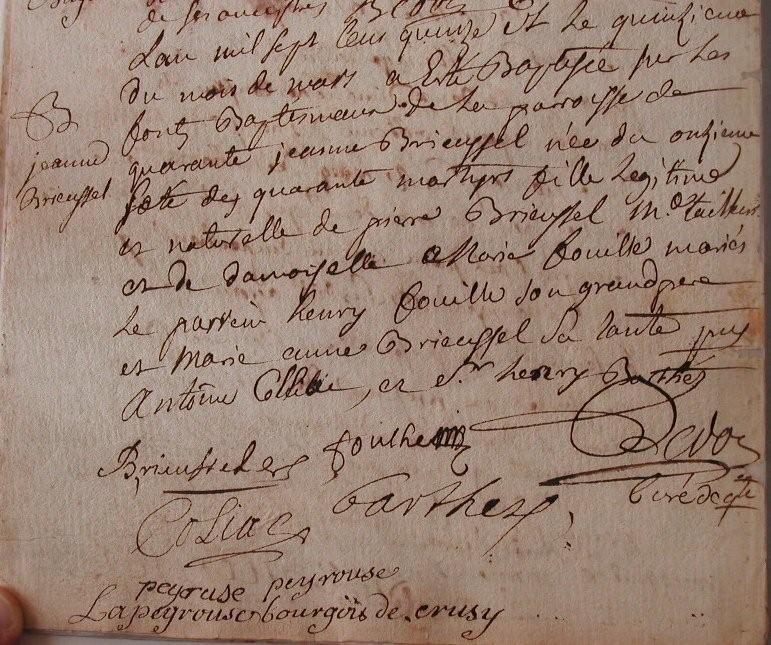 de ses ancestres
Lan mil sept cens quinze et le quinzieme
du mois de mars a esté Baptisée sur les
B
fonts Baptismeaux de la parroisse de
jeanne
quarante jeanne Brieussel née du onzieme
Brieussel
fete des quarante martyrs fille legitime
et naturelle de pierre Brieussel Me tailleur
et de damoiselle Marie fouilhe mariés
le parrein henry fouilhe son grandpere
et Marie anne Brieussel sa tante pns
Antoine, et Sr henry Barthes
Coliac barthes
Curé de
peyruse peyrouse
Lapeyrouse bourgois de crusy